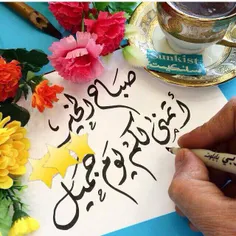 صباح الخير
أتمنى لكم يوم جميل
Sunkist